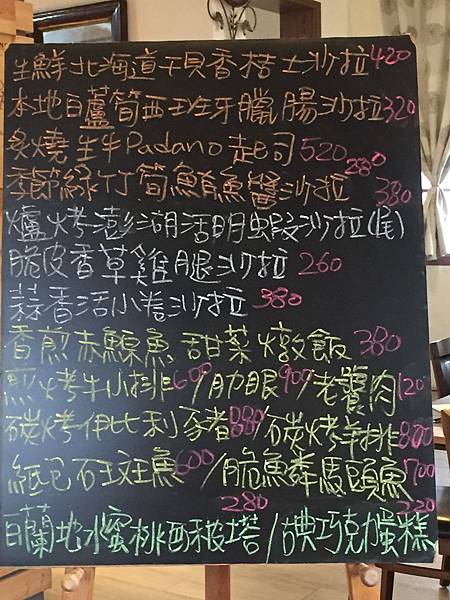 生鮮北海道干貝香桔士沙拉420
本地白蘆筍西班牙臘腸沙拉320
炙燒生牛Padano起司520
280
季節綠竹筍鮪魚醬沙拉
爐烤澎湖活明蝦沙拉(尾) 380
脆皮香草雞腿沙拉 260
蒜香活小卷沙拉 380
香煎赤鯮魚甜菜燉飯 380
煎烤牛小排600/肋眼900/老饕肉120
碳烤伊比利豬880/碳烤羊排800
紙包石斑魚600/脆鱗馬頭魚700
280 220
白蘭地水蜜桃酥皮塔/古典巧克力蛋糕